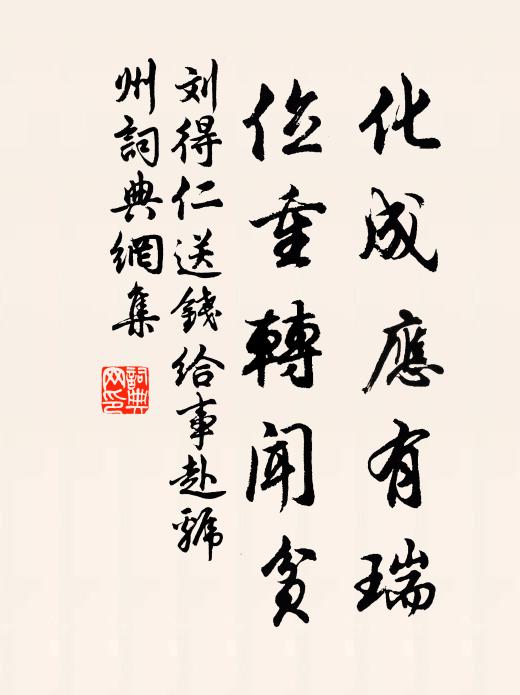 化成應有瑞
位重轉闻貧
刘得仁送錢给事赴虢
州詞典網集
詞典网印